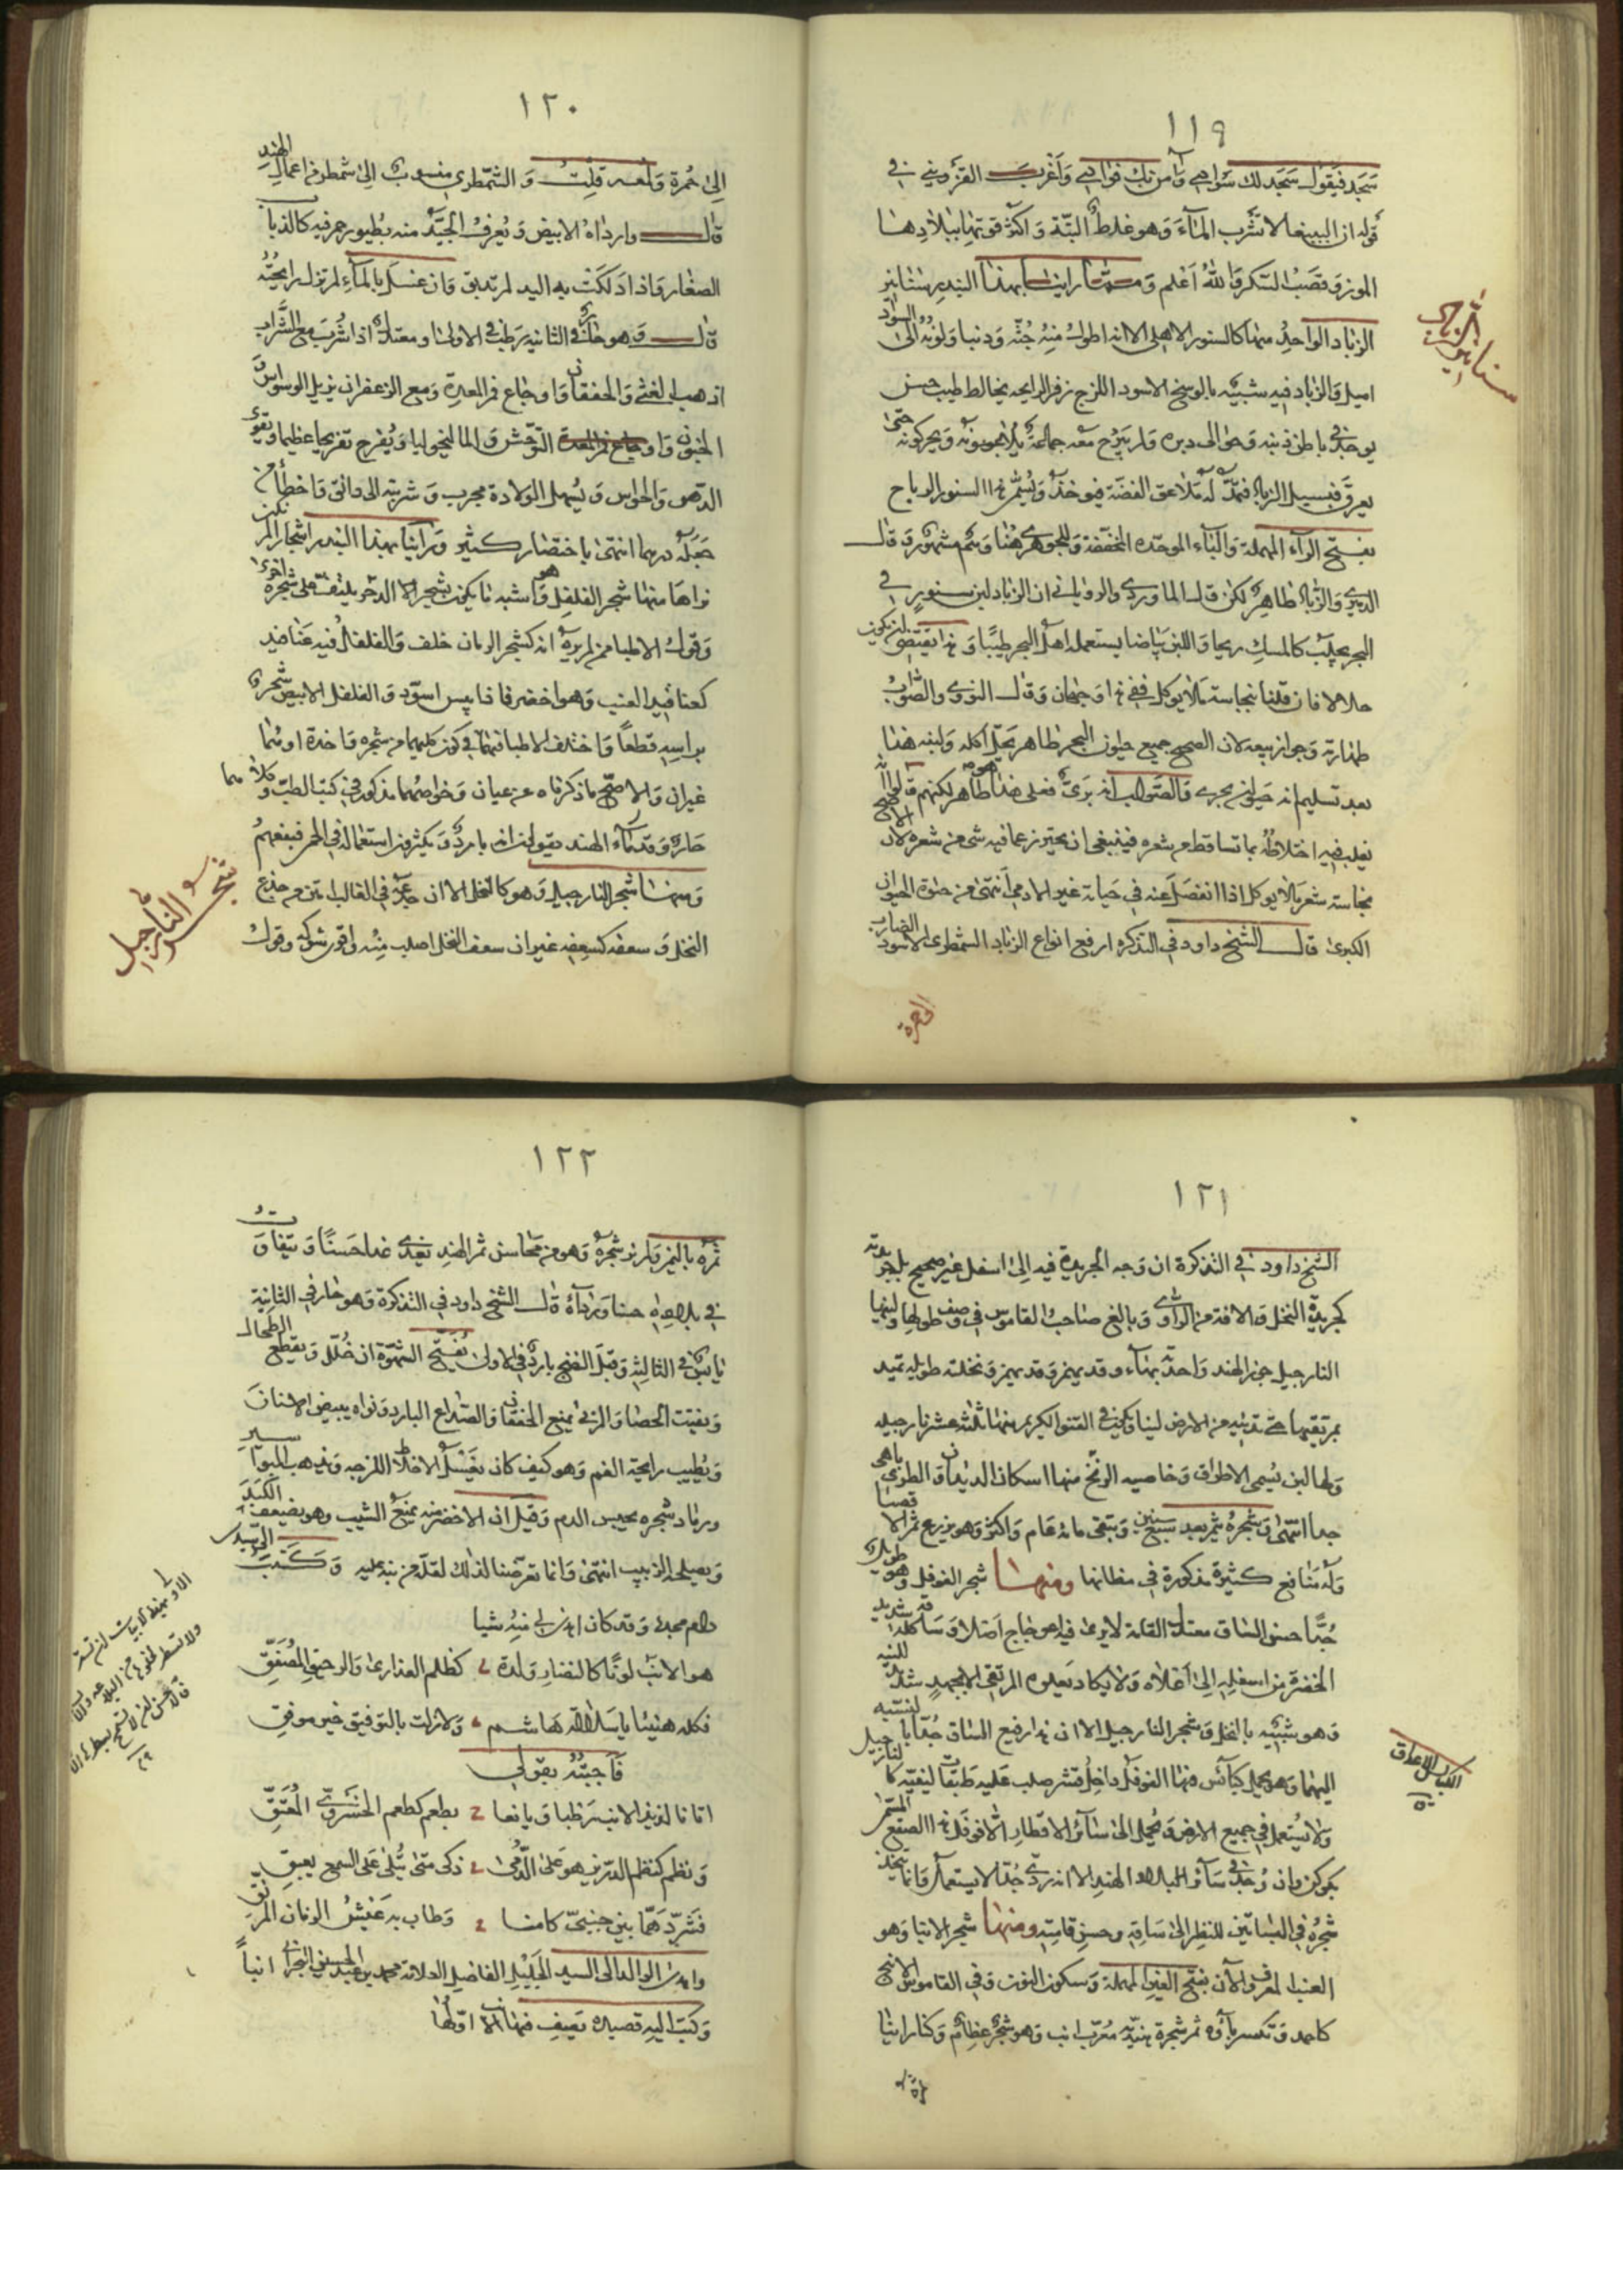 ١١٩
سَجَد فيَقول سَجَد لك سَوادي وآمن بك فوادي وَأغرب القزويني في
قوله ان الببغا لا تشرب المآءَ وَهو غلط البتّة وَاكثر قوتها ببلادها
الموز وَقصَبُ السّكر وَاللهُ اَعلم وَممّا راينا بهذا البندر سَنانير
الزباد الواحِدُ منها كالسنور الاهلي الا انه اطولُ مِنهُ جُثّه وَذنبا وَلونُه الىَ السواد
اميل وَالزباد فيه شبيه بالوسخ الاسود اللزج زفر الرايحه يخالطه طيب حسن
يوجد في باطن ذنبه وَحوالى دبره وَلم يبرح معه جماعَة يلاعبونه وَيحركونه حتى
يعرق فيسيل الزباد فيمدّ له مَلاعق الفضّة فيوخذ وَيُسمّى هذا السنور الرباح
بفتح الرآء المهملة وَالبآء الموحّده المخففة وَللجوهري هُنا وَهم مشهور قال
الدميري وَالزباد طاهِر لكن قال الماوردي والروياني ان الزباد لبن سنورٍ في
البحر يجلب كالمسك ريحا وَاللبن بيَاضا يستعمله اهل البحر طيبًا وَهذا يقتضي ان يكون
حلالا فان قلنا بنجاسة مَا لا يوكل ففي هذا وَجهان وَقال النووي والصَّوابُ
طهارته وَجواز بيعه لان الصحيح جميع حيوان البحر طاهر يَحلّ اكله وَلبنه هذا
بعد تسليم انه حَيوان بحري وَالصَّواب انه بَريّ فعَلى هذا هو طاهر لكنهم قالوا انه
يغلب فيه اختلاطُه بما تساقط من شعره فينبغي ان يحترز عما فيه شي من شعره لان الاصح
نجاسة شعر مَا لا يوكل اذا انفصَل عنه في حَياته غير الادمي انتهىَ من حيَوة الحيَوان
الكبرىَ قال الشيخ داود في التذكره ارفع انواع الزباد الشمطري الاسود الضارب
الى حمرة
سنانير الزباد
١٢٠
الىَ حُمرة وَلمعه قلتُ وَ الشمّطري منسوب الىَ شمطره من اعمال الهند
قال وارداهُ الابيض وَيُعرفُ الجيّد منه بطيور حمر فيه كالذباب
الصغار وَاذا دَلكتَ به اليد لم تدبق وَان غسَل بالمآءِ لم تزل رايحتُه
قال وَهو حارّ في الثانيه رَطب في الاولىَ او معتدلٌ اذا شُرب مع الشَّراب
اذهب الغشى وَالخفقان وَاوجَاع فم المعدة وَمع الزعفران يزيل الوسواسَ
الجنون وَاوجاع فم المعدة التوّحش وَالماليخوليا وَيُفرح تفريحا عظيما وَيقوّي
الذهن وَالحواس وَيُسهل الولادة مجرب وَشربته الى دانق وَاخطأ من
جَعَله درهما انتهىَ باختصار كثير وَرَاينَا بهذا البندر اشجارا لم نكن
نراهَا منها شجر الفلفل وَهو اشبه مَا يكون بشجر الا انه يلتفّ عَلى شجرة اخرىَ
وَقولُ الاطبا ممن لم يره انه كشجر الرمان خلف وَالفلفلُ فيه عَناقيد
كعناقيد العنب وَهو اخضر فاذا يبس اسوّد وَالفلفل الابيض شجره
براسِه قطعاً وَاختلف الاطبا فيهما في كون كليهما من شجره وَاحدة او هُما
غيران وَالاصحّ مَا ذكرناه عن عيان وَخواصُهما مذكور في كتب الطبّ وَكلاهما
حَارّ وَقدمآء الهند يقولون انه باردٌ وَيكثرون استعماله في الحمر فينفعهُم
وَمنها شجر النارجيل وَهو كالنخل الا ان جذعَهُ في الغالب اتمّ من جذع
النخل وَسعفه كسعفه غير ان سعف النخل اصلب مِنْه وَاقوىَ شوكة وقولُ
شجر النارجيل
١٢١
الشيخ داود في التذكرة ان وَجه الجريدة فيه الىَ اسفل غير صحيح بل جريدته
كجريدة النخل وَالافة من الراوي وَبالغ صَاحبُ القاموس في وَصف طولها ولينها
النارجيل جوز الهند وَاحدته بهآء وقد يهمز وَنخلته طويله تميد
بمرتقيها حتى تدنيه من الارض لينا وَيكون في القنو الكريم منها ثلثون نارجيله
وَلها لبن يُسمى الاطراق وَخاصيه الزنخ منها اسكان الديدان وَالطري باهي
جدا انتهَى وَشجرهُ يثمر بعد سَبع سنين وَتبقى مائة عَام وَاكثر وَهو يزرع ثمر الا قصبا
وَله مَنافع كثيرة مذكورة في مظانها ومنها شجر الفوفل وَهو طويل
جُدّا حسن السَّاق معتدل القامة لا يرىَ فيه اعوجَاج اَصلا وَساقه كله شديد
الخضرة من اسفلِه الىَ اَعْلاه وَلا يكاد يَعلوه المرتقي الا بجهدٍ شديد للينه
وَهو شبيه بالنخل وَشجر النارجيل الا ان هذا رفيع السَّاق جُدّا بالنسبه
اليهما وَهو يحمل كبآئس فيها الفوفل داخل قشر صلب عَليه طَبقات ليفيّه كالنارجيل
وَلا يُستعمل في جميع الارض وَيُحمل الى سَآئر الاقطار الا فوفل هذا الصقع المستمر
كوكن وان وُجد في سَآئر البلاد الهند الا انه رديّ جُدّا لا يستعمل وَانما يتخذ
شجره في البساتين للنظر الىَ سَاقِه وحسن قامَتِه ومنها شجر الانبا وَهو
العنبا المعرف وَالآن بفتح العين المهملة وَسكون النون وَفي القاموس الانبج
كاحمد وَتكسر بآؤه ثمر شجرة هندّيه مُعرّب انب وَهو شجر عظام وَكنا راينا
الكبايس الاعذاق
١٢٢
ثمرهُ باليمن وَلم نر شجرهُ وَهو من محَاسن ثمر الهندِ يغذي غذا حَسَنًا وَيتفاوت
في بلادِه حسنا وَردآءةً قال الشيخ داود في التذكرة وَهو حَار في الثانِية
يَابسٌ في الثالثِه وَقبل النضج بارد في الاولىَ يُفتح الشَهْوَة ان خُلّل وَيقطع الطحال
وَيفتت الحصَا وَالمربى يمنع الخفقان وَالصَداع البارد وَنواه يبيض الاسنانَ
وَيُطيب رايحة الفم وَهو كيف كان يغسل الاخلاط اللزجه وَيذهب البواسير
ورمَاد شجره يحبس الدم وَقيلَ ان الاخضرَ منه يمنَع الشيب وهو يضعف الكبدَ
وَيصلحه الزبيب انتهىَ وَانما تعرّضنا لذلك لقلّة من ينبه عليه وَكتَبَ الى السيد
دام مجدُه وَقد كان اهدى لي مِنهُ شيا
هو الانبُ لونًا كالنضار وَلذة كظلم العذارىَ وَالرحيق المُصَفّقِ
فكله هنيئا يا سلالة هَاشم وَلازلت بالتوفيق خير موفقِ
فَاجبتُهُ بقولي
اتانا لذيذ الانب رَطبا وَيانعا بطعم كطعم الخسروَيّ المُعتقِ
وَنظم كنظم الدّر يزهو عَلىَ الدُّمىَ ذكى متىَ يُتلىَ عَلى السمع يعبقِ
فشرّدَ هَمّا بين جنبيّ كامنا وَطاب به عَيشُ الزمان المرنّقِ
واهدىَ الوالد الى السيد الجَليْلِ الفاضل العلامة محمد بن عبد الحسين البحراني انباً
وَكتبَ اليه قصيده يَصف فيهَا الانب اوّلهَا